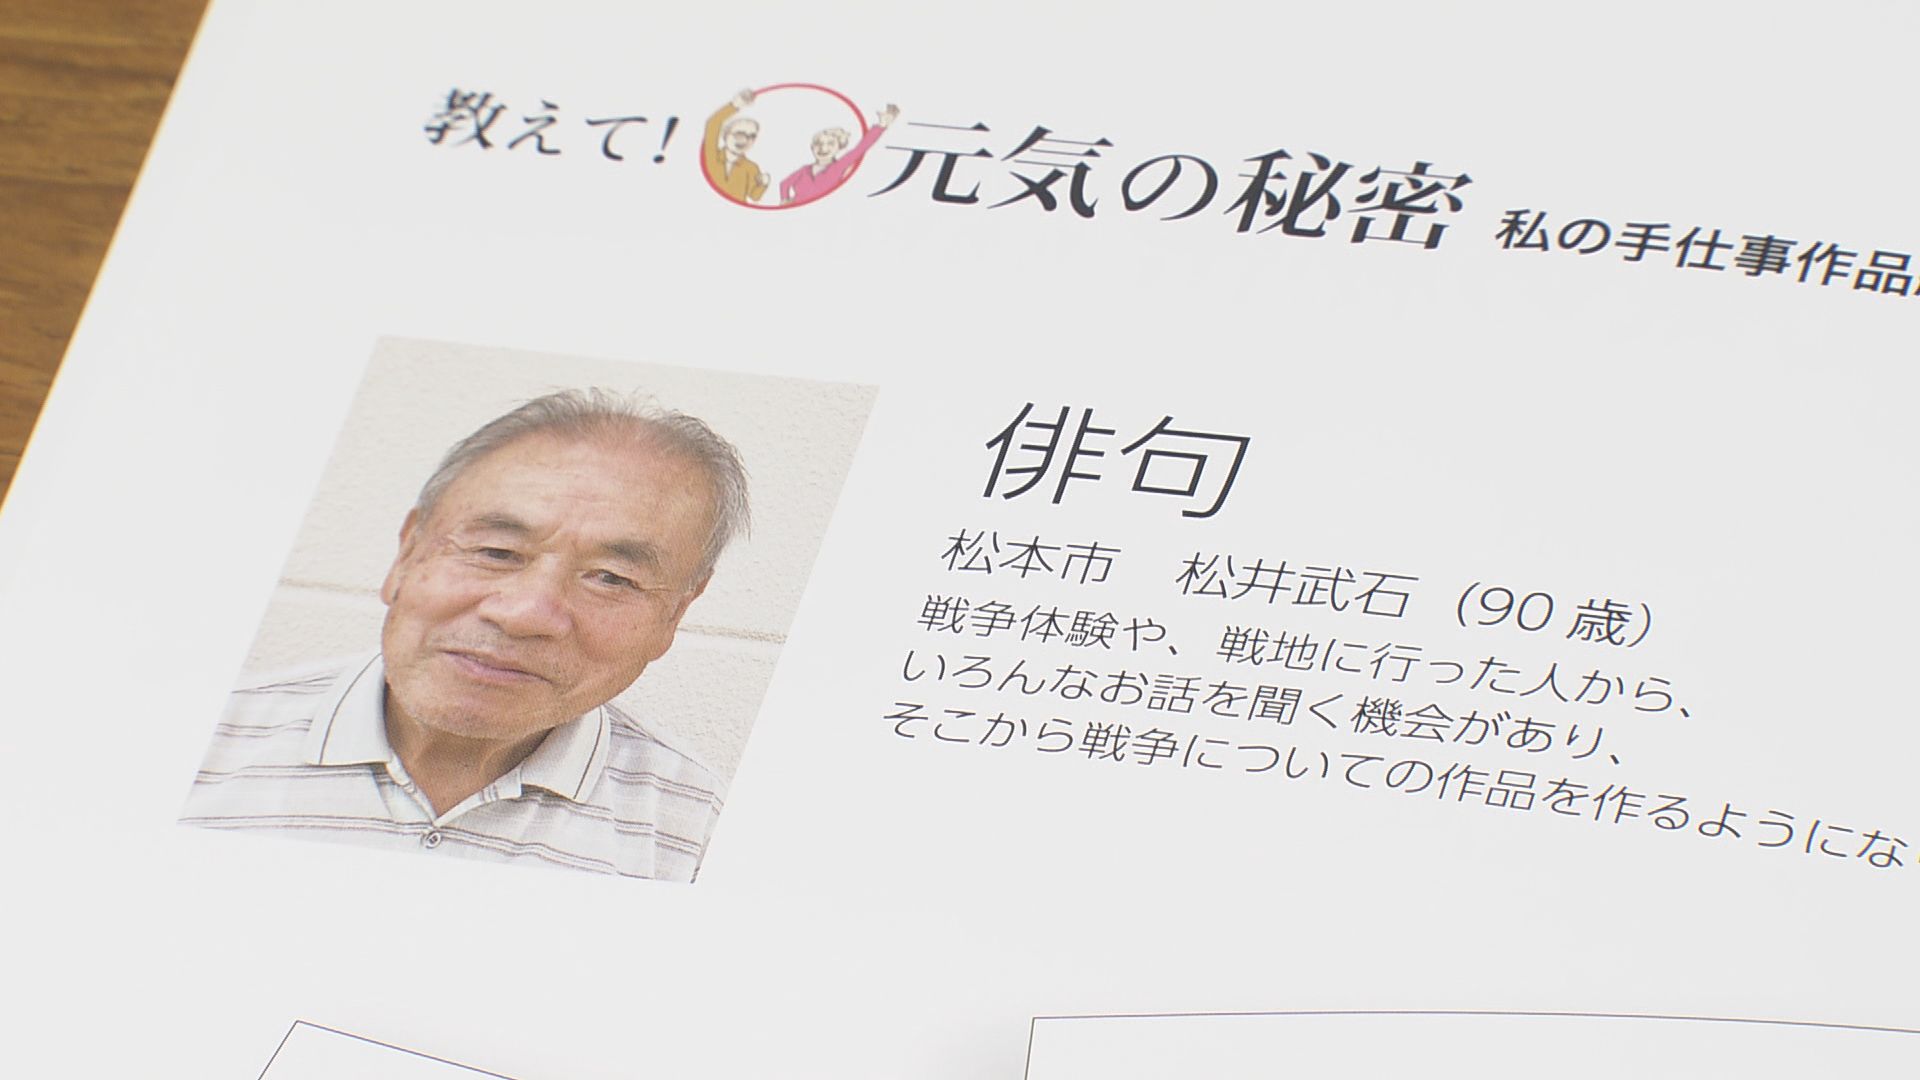 教えて！元気の秘密 私の手仕事作品
俳句
松本市　松井武石（90歳）
戦争体験や、戦地に行った人から、
いろんなお話を聞く機会があり、
そこから戦争についての作品を作るようにな